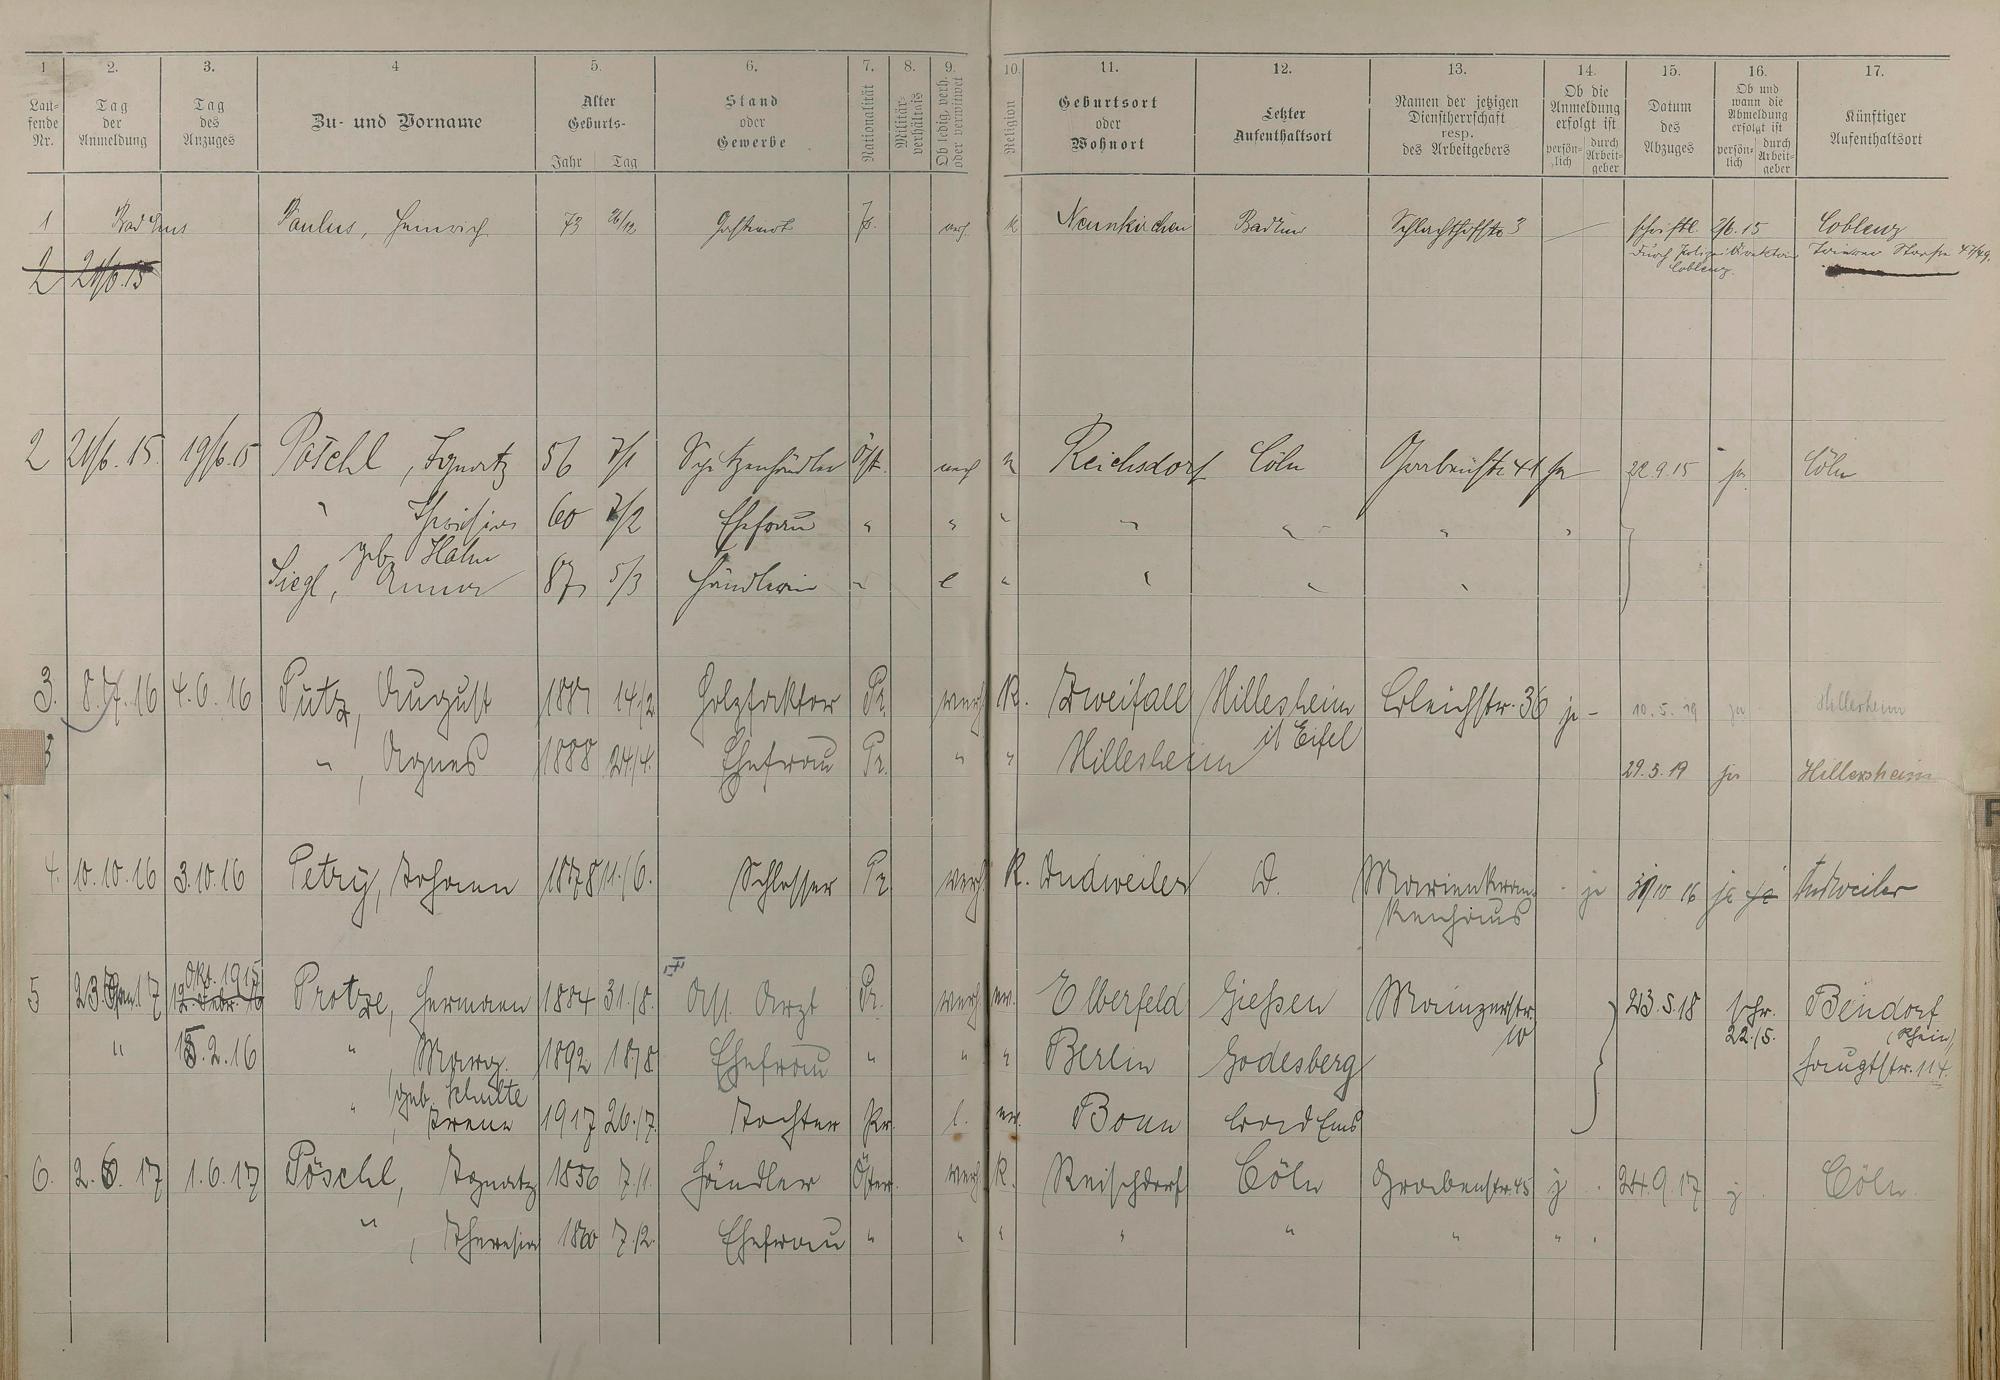 1 2. 3. 4 5. 6. 7. 8. 9. 10. 11. 12. 13. 14. 15. 16. 17.
Lau-fende Nr. Tag der Anmeldung Tag des Anzuges Zu- und Vorname Alter Geburts- Jahr Tag Stand oder Gewerbe Nationalität Militär-verhältnis Ob ledig, verh. oder verwitwet Religion Geburtsort oder Wohnort Letzter Aufenthaltsort Namen der jetzigen Dienstherrschaft resp. des Arbeitgebers Ob die Anmeldung erfolgt ist persön-lich durch Arbeit-geber Datum des Abzuges Ob und wann die Abmeldung erfolgt ist persön-lich durch Arbeit-geber Künftiger Aufenthaltsort
1 Bad Ems Paulus, Heinrich 73 26/12 Gastwirt P. verh. K Neunkirchen Bad Ems Schlachthofstr. 3 — schriftl. 2/6.15 Coblenz
durch Polizei Direktion Coblenz. Trierer Straße 47/49.
2 21/6.15
2 21/6.15. 19/6.15 Pöschl, Ignatz 56 7/1 Spitzenhändler Öst. verh K Reichsdorf Cöln Grabenstr. 41 ja 22.9.15 ja Cöln
" Theresia 60 7/2 Ehefrau " " " " " " "
geb. Hahn
Siegl, Anna 87 5/3 Händlerin " l " " " "
3. 8.7.16 4.6.16 Pütz, August 1887 14/2 Holzfaktor Pr. verh. K. Zweifall Hillesheim Bleichstr. 36 ja – 10.5.19 ja Hillesheim
i/ Eifel
3 ", Agnes 1888 24/4. Ehefrau Pr. " " Hillesheim 29.5.19 ja Hillersheim
4. 10.10.16 3.10.16 Petry, Johann 1878 11./6. Schlosser Pr verh. K. Dudweiler D. Marienkran- - ja 10 16 ja ja Dudweiler
kenhaus
Okt. 1915
5 23. Jan. 17 12. Febr. 16 Protze, Hermann 1884 31./8. Ass. Arzt Pr. verh. ev. Elberfeld Giessen Mainzerstr. 10 23.5.18 22./5. Bendorf
(Rhein),
" 15.2.16 " Marg. 1892 18/8 Ehefrau " " " Berlin Godesberg Hauptstr. 114.
geb. Schulte
" , Irene 1917 26./7. Tochter Pr. l. ev. Bonn Bad Ems
6. 2.6.17 1.6.17 Pöschl, Ignatz 1856 7./1. Händler Öster. verh. K. Reischdorf Cöln Grabenstr. 45 j . 24.9.17 j Cöln.
" , Theresia 1860 7./2. Ehefrau " " " " " " " .